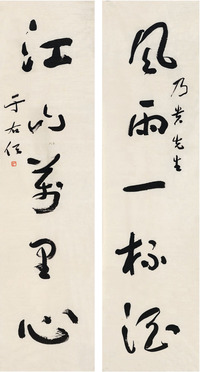 風雨一杯酒
乃贵先生
江山萬里心
于右任